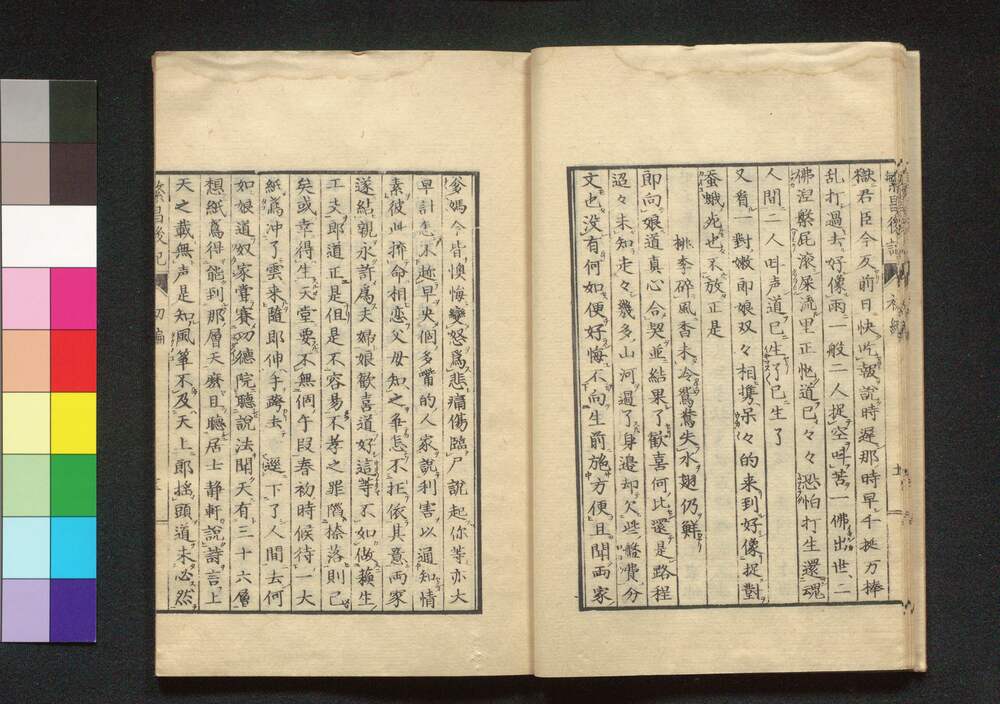 繁昌後記 初編
獄君臣令反前日快吃皷說時遲那時早千挺万棒
乱打過去好像両一般二人捉空叫苦一佛出世二
佛涅槃屁滚屎流里正忙道已々々恐怕打生還魂
人間二人叫声道已生了已生了
又看一對嫩郎娘双々相携呆々的来到好像捉對
蚕蛾光也不放正是
桃李碎風香未冷鴛鴦失水翅仍鮮
即向娘道真心合契並結果了歡喜何比還是路程
迢々未知走々幾多山河過了身邉却欠些盤費分
文也没有何如便好悔不向生前施方便且聞両家
爹媽今皆懊悔變怒爲悲痛傷臨尸說起你等亦大
早計怎不趂早央個多嘴的人家說利害以通知情
素彼此擠命相恋父母知之争怎不拒依其意両家
遂結親永許爲夫婦娘歡喜道好這等不如做蘓生
工夫郎道正是但是不容易不孝之罪隠捺落則已
矣或幸得生天堂要不無個午段春初時候待一大
紙爲冲了雲来随郎伸手蹲去逕下了人間去何
如娘道奴家嘗賽功德院聴說法聞天有三十六層
想紙爲得能到那層天麽且聴居士静軒說詩言上
天之載無声是知風筆不及天上郎揺頭道未必然
繁昌後記 初編